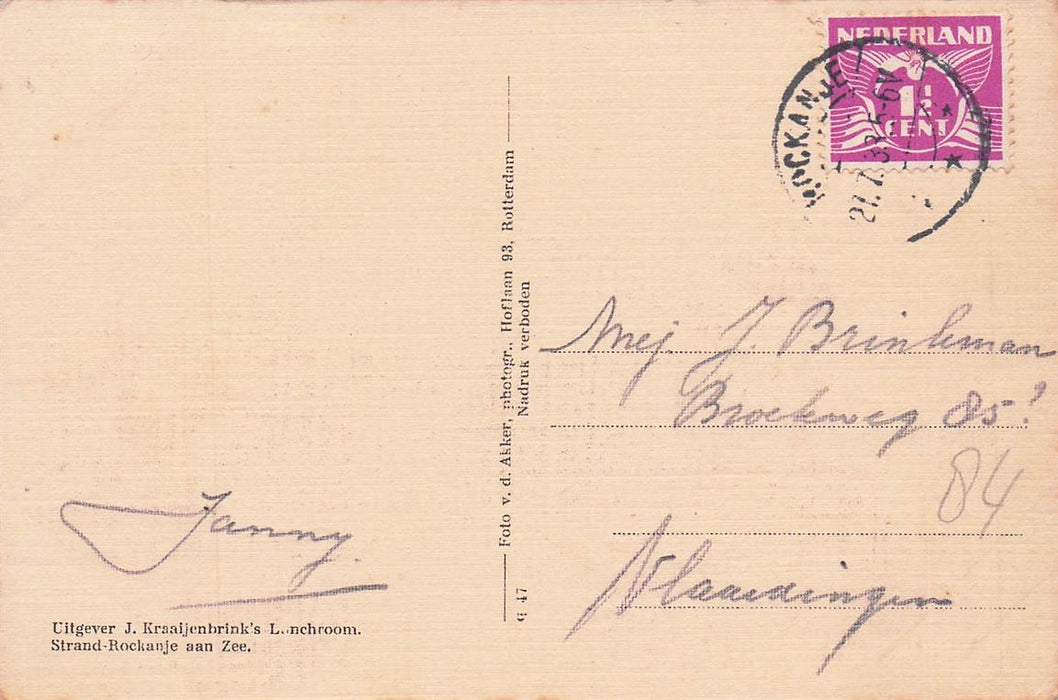 NEDERLAND
1½
CENT
ROCKANJE
21.7.3 5-6V
Mej. J. Brinkman
Broekweg 85?
84
Vlaardingen
Janny.
Uitgever J. Kraaijenbrink's Lunchroom.
Strand-Rockanje aan Zee.
Foto v. d. Akker, photogr., Hoflaan 93, Rotterdam
Nadruk verboden
G 47